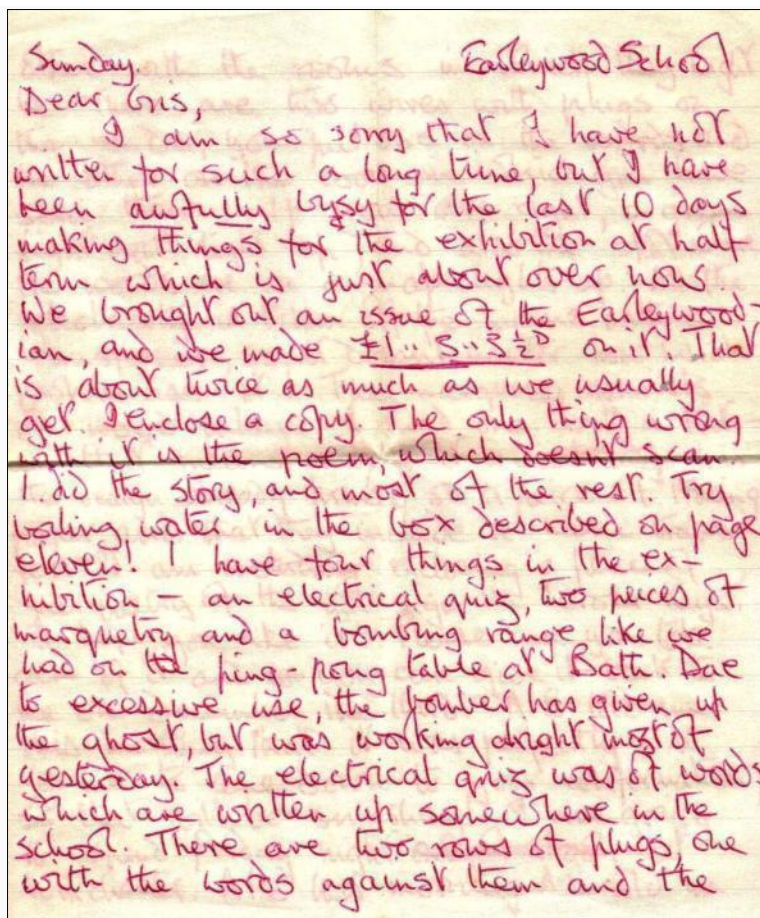 Sunday. Earleywood School
Dear Gris,
I am so sorry that I have not
written for such a long time, but I have
been awfully busy for the last 10 days
making things for the exhibition at half
term which is just about over now.
We brought out an issue of the Earleywood-
ian, and we made £1..5..3½D on it. That
is about twice as much as we usually
get. I enclose a copy. The only thing wrong
with it is the poem, which doesnt scan.
I did the story, and most of the rest. Try
boiling water in the box described on page
eleven! I have four things in the ex-
hibition - an electrical quiz, two peices of
marquetry and a bombing range like we
had on the ping-pong table at Bath. Due
to excessive use, the bomber has given up
the ghost, but was working alright most of
yesterday. The electrical quiz was of words
which are written up somewhere in the
school. There are two rows of plugs, one
with the words against them and the